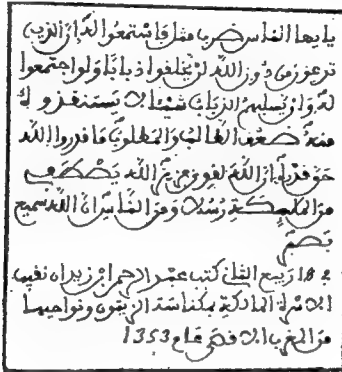 يايها الناس ضرب مثل فاستمعوا له إن الذين
تدعون من دون الله لن يخلقوا ذبابا ولو اجتمعوا
له وإن يسلبهم الذباب شيئا لا يستنقذوه
منه ضعف الطالب والمطلوب ما قدروا الله
حق قدره إن الله لقوي عزيز الله يصطفي
من الملٰئكة رسلا ومن الناس إن الله سميع
بصير
في 18 ربيع الثاني كتب عبد الرحمن بن زيدان نقيب
الاسرة المالكية بمكناسة الزيتون ونواحيها
من المغرب الاقصى عام 1353